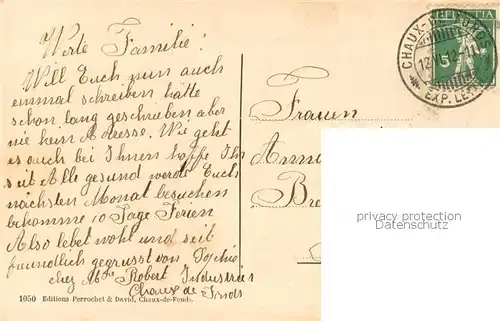 Werte Familie!
Will Euch nun auch
einmal schreiben hätte
schon lang geschrieben aber
nie kein Adresse. Wie geht
es auch bei Ihnen hoffe Ihr
seit Alle gesund werde Euch
nächsten Monat besuchen
bekomme 10 Tage Ferien
Also lebet wohl und seit
freundlich gegrüsst von Sophie
chez Mme Robert Industries
Chaux de Fonds
1050 Editions Perrochet & David, Chaux-de-Fonds.
HELVETIA
5
CHAUX-DE-FONDS
EXP. LET.
Frauen
Anna
Bre
privacy protection
Datenschutz